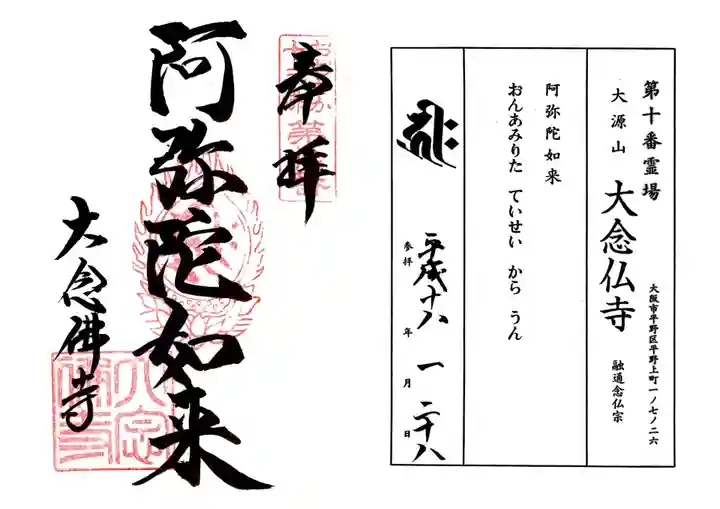 奉拝
阿弥陀如来
大念佛寺
第十番霊場
大源山 大念仏寺
大阪市平野区平野上町一ノ七ノ二六
融通念仏宗
阿弥陀如来
おんあみりた ていせい から うん
参拝 平成十八年 一月 二十八日